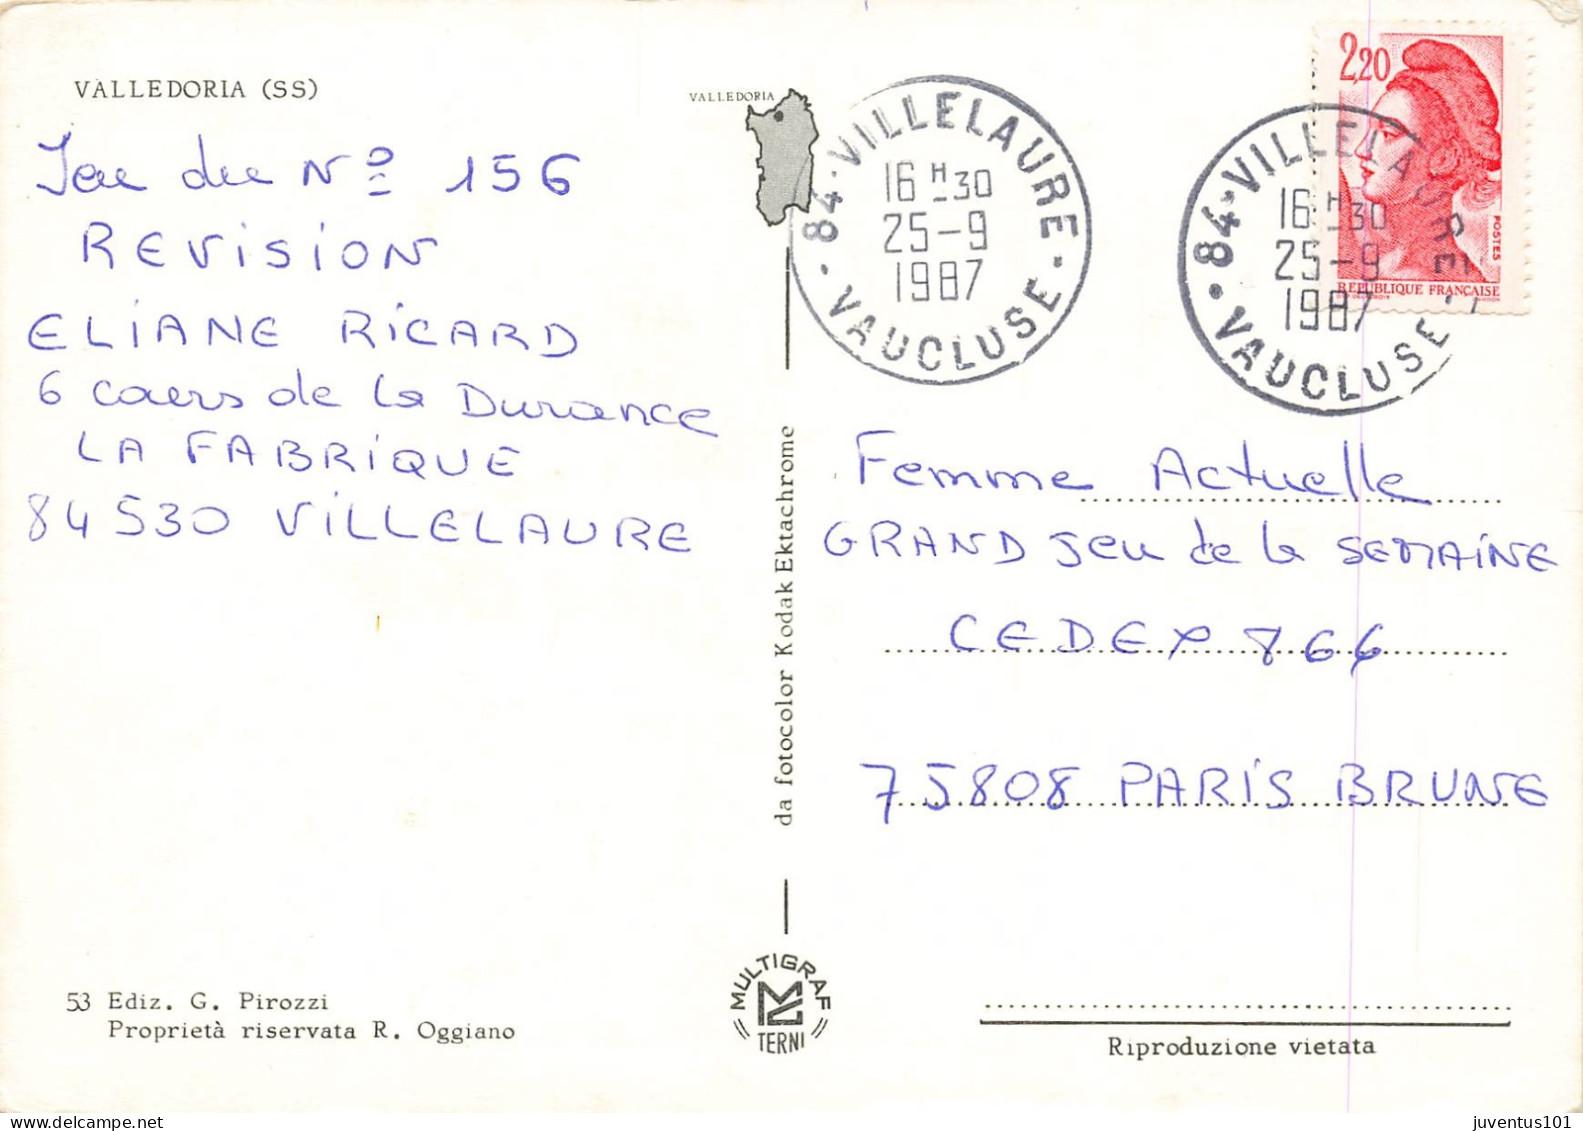 VALLEDORIA (SS)
Jeu du N° 156
REVISION
ELIANE RICARD
6 cours de la Durance
LA FABRIQUE
84530 VILLELAURE
53 Ediz. G. Pirozzi
Proprietà riservata R. Oggiano
VALLEDORIA
da fotocolor Kodak Ektachrome
MULTIGRAF
TERNI
84 · VILLELAURE ·
16 H 30
25-9
1987
· VAUCLUSE ·
84 · VILLELAURE
16 H 30
25-9
1987
· VAUCLUSE -
2,20
POSTES
REPUBLIQUE FRANÇAISE
Femme Actuelle
GRAND Jeu de la SEMAINE
CEDEX 866
75808 PARIS BRUNE
Riproduzione vietata
juventus101